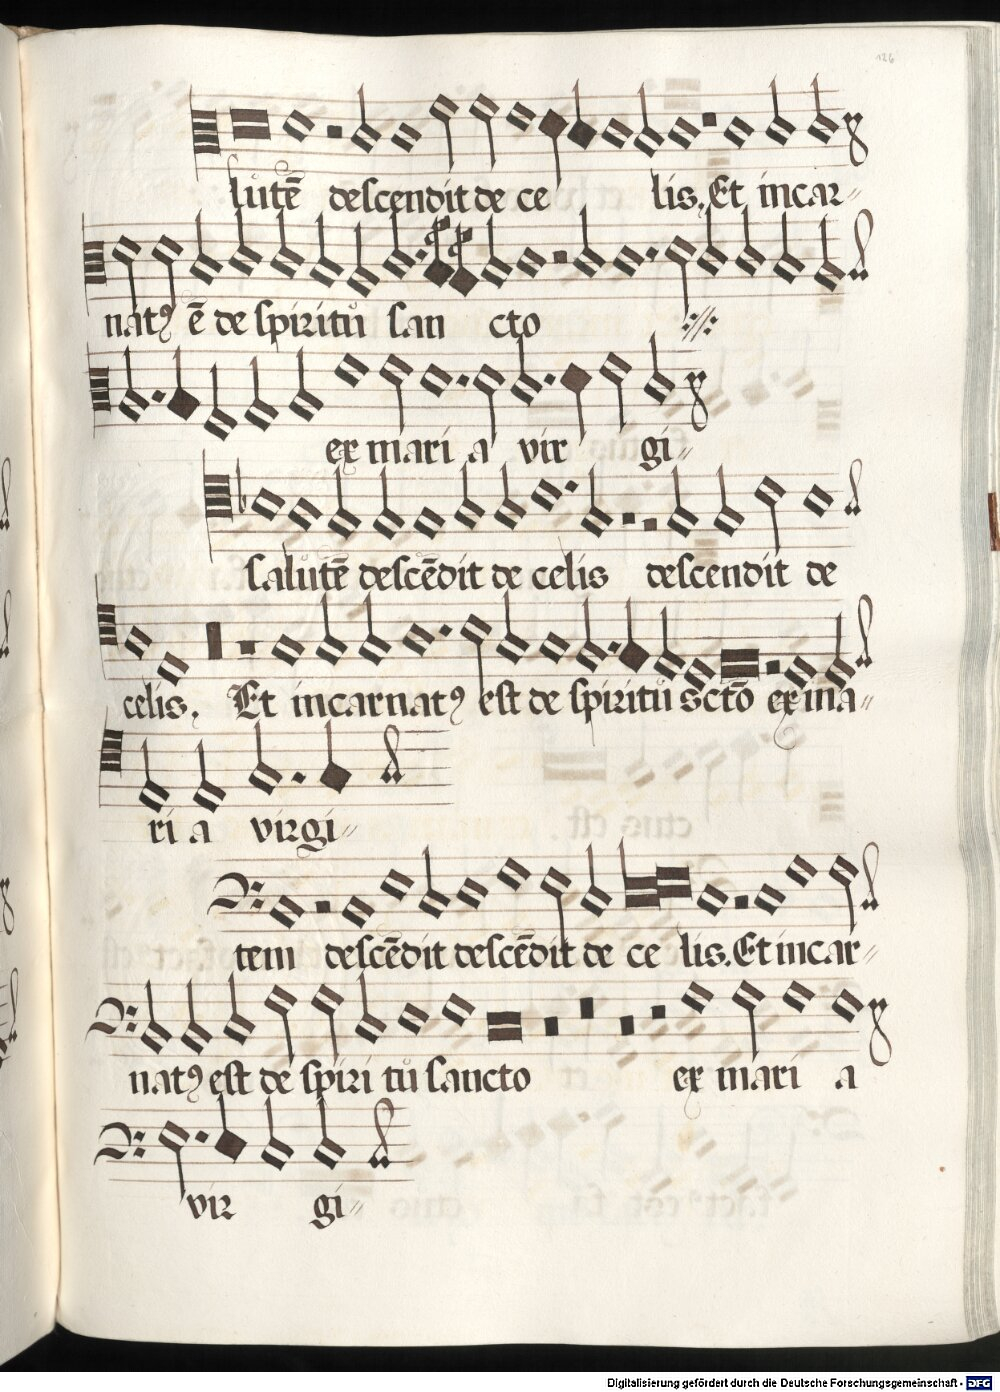 126
lutē descendit de ce lis. Et incar⸗
natꝰ ē de spiritu̇ san cto ://:
ex mari a vir gi⸗
Salutē descēdit de celis descendit de
celis. Et incarnatꝰ est de spiritu̇ sctō ex ma⸗
ri a virgi⸗
tem descēdit descēdit de ce lis. Et incar⸗
natꝰ est de spiri tu̇ sancto ex mari a
vir gi⸗
Digitalisierung gefördert durch die Deutsche Forschungsgemeinschaft - DFG